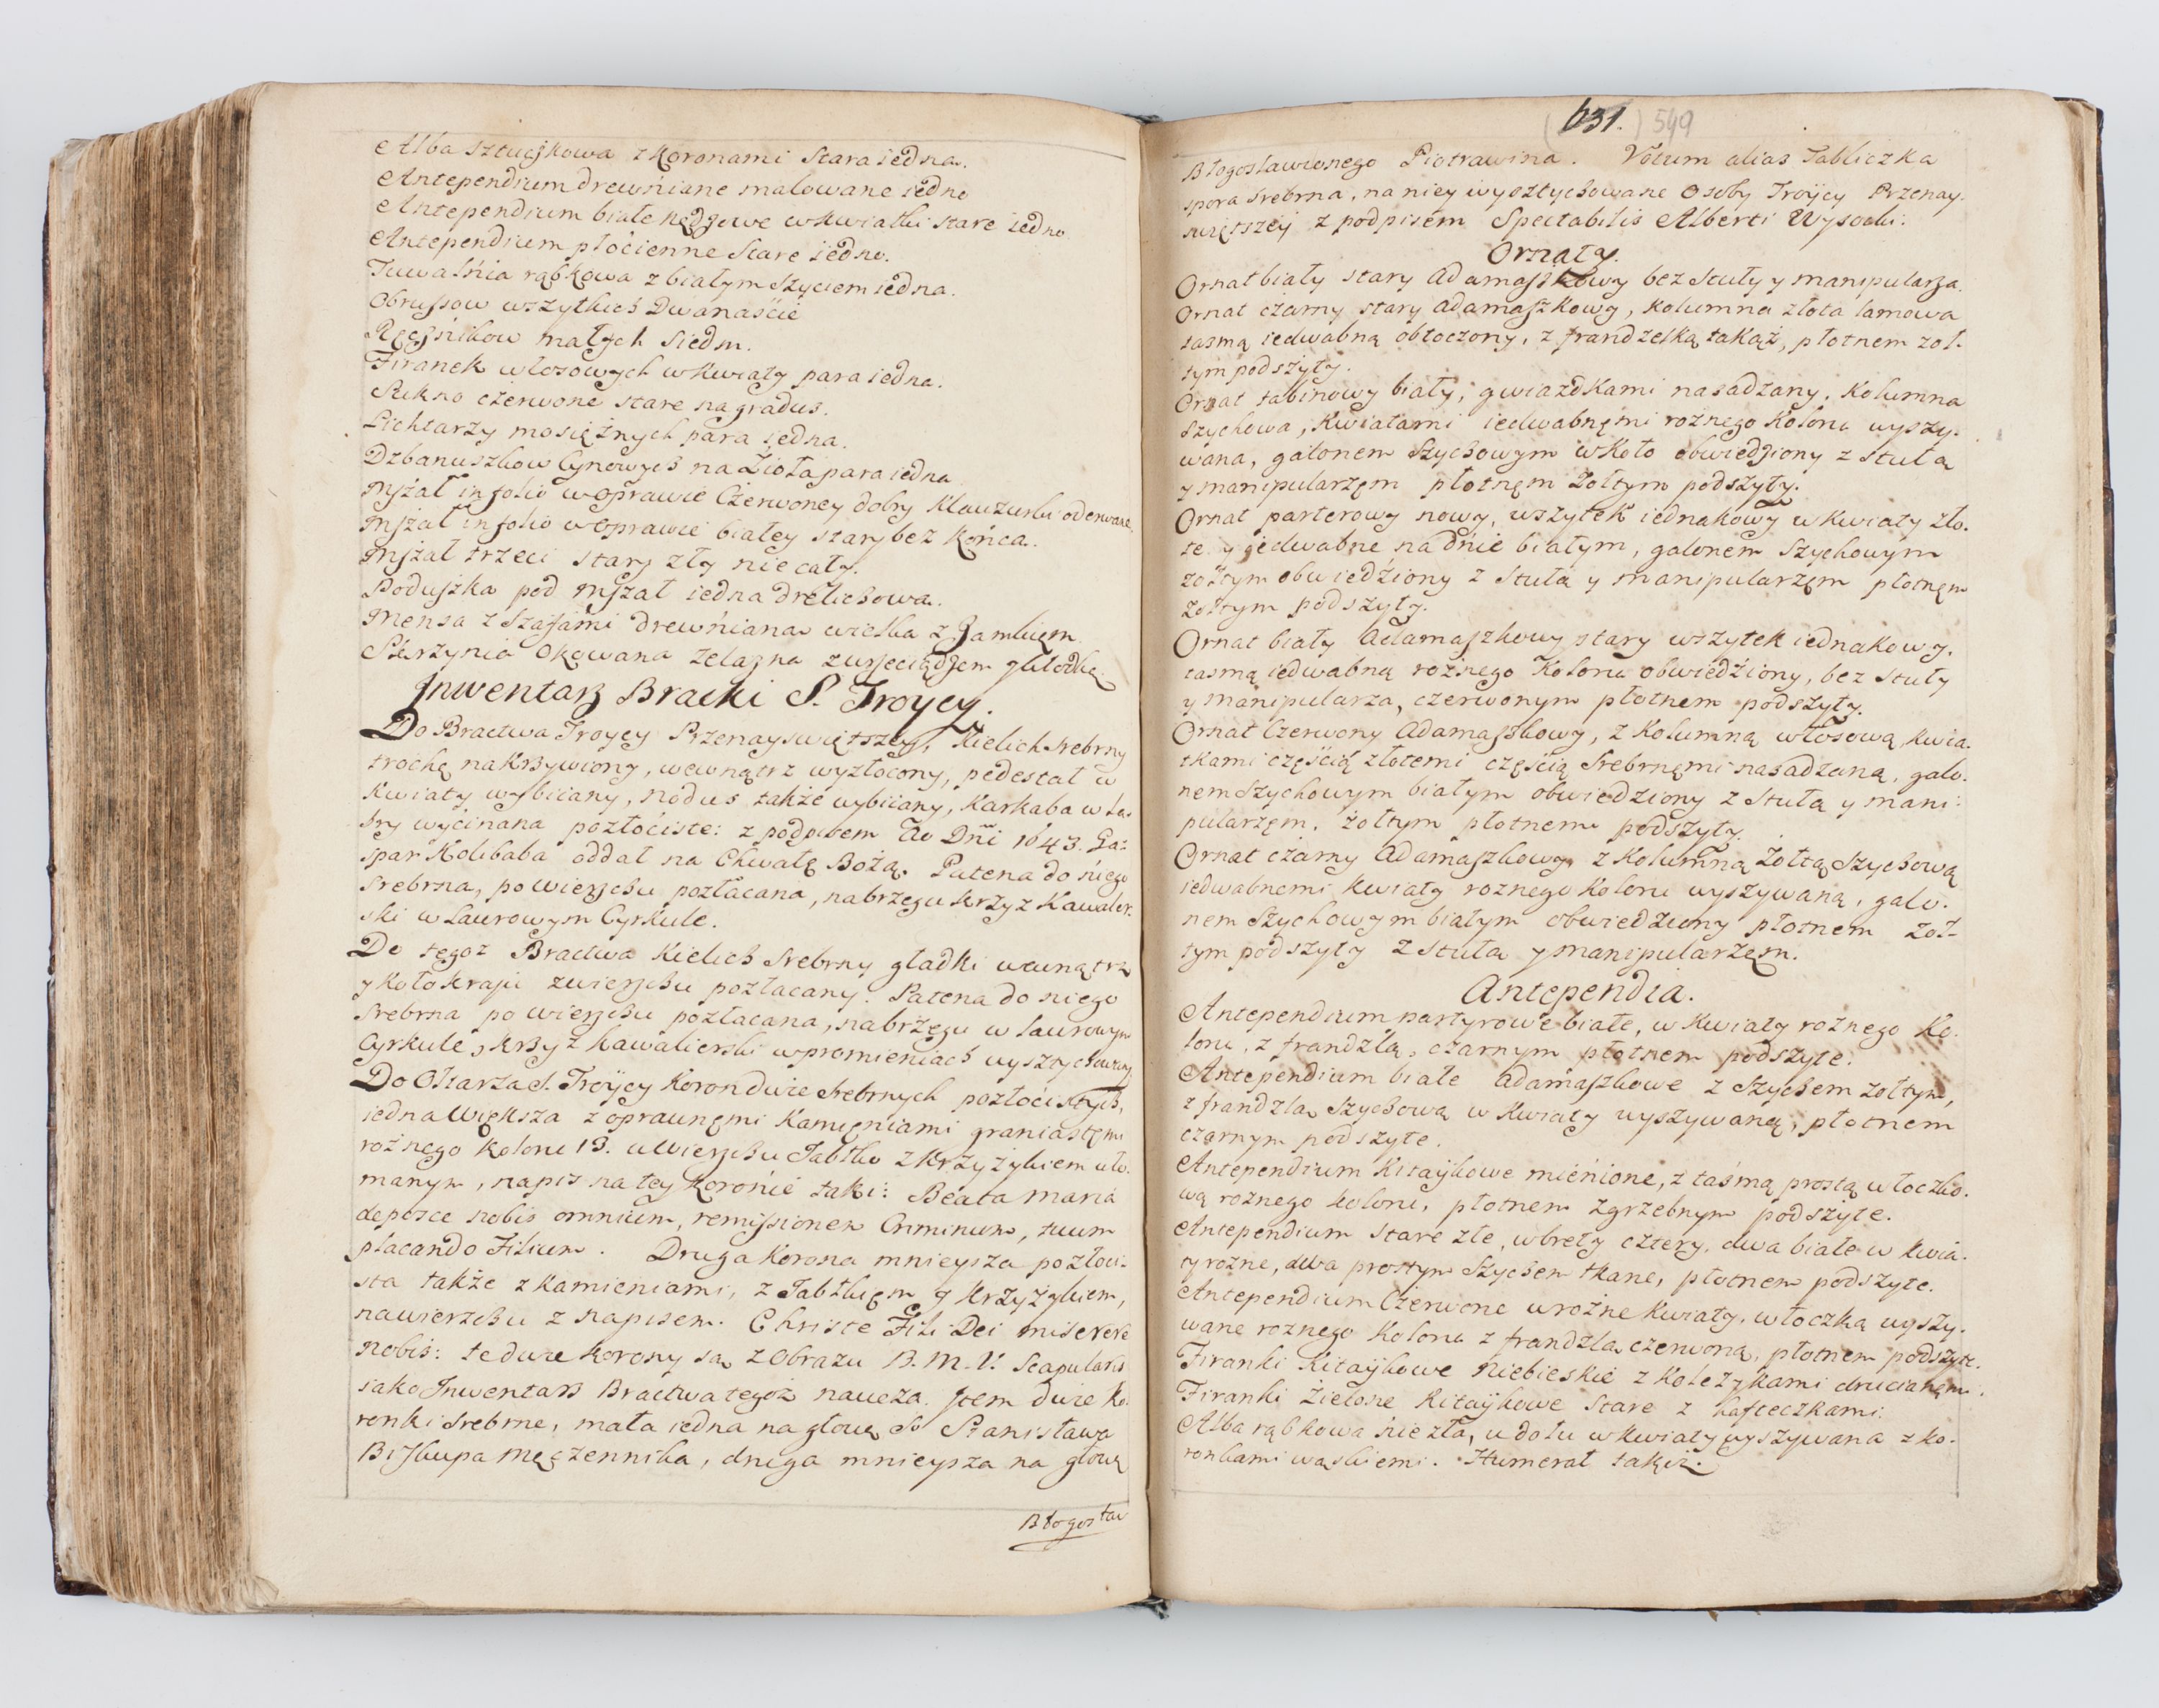 Alba Sztuczkowa z Koronami Stara iedna.
Antependium drewniane malowane iedno
Antependium białe w kwiatki stare iedno
Antependium płocienne Stare iedno.
Tuwalnia rąbkowa z białym Szyciem iedna.
Obrussow wszytkich Dwanaście
Ręcznikow małych Siedm.
Firanek włosowych w Kwiaty para iedna.
Sukno czerwone stare na gradus.
Lichtarzy mosiężnych para iedna.
Dzbanuszkow Cynowych na Zioła para iedna
Mszał in folio w oprawie Czerwoney dobry Klauzurki oderwane
Mszał in folio w oprawie białey stary bez Końca.
Mszał trzeci stary zły nie cały.
Poduszka pod Mszał iedna drelichowa.
Mensa z Szafami drewniana wielka z Zamkięm
Skrzynia Okowana Zelazna z wrzeciądzem
Inwentarz Bracki S. Troycy.
Do Bractwa Troycy Przenayswiętszey, Kielich srebrny
trochę nakrzywiony, wewnątrz wyzłocony, pedestał w
Kwiaty wybiiany, nodus także wybiiany, Karkaba w La-
sry wycinana pozłociste: z podpisem Ao Dni 1643. Ga-
spar Kolibaba oddał na Chwałę Bożą. Patena do niego
srebrna, po wierzchu pozłacana, na brzegu krzyz Kawaler-
ski w Laurowym Cyrkule.
Do tegoż Bractwa Kielich Srebrny gładki wewnątrz
y koło kraju zwierzchu pozłacany. Patena do niego
Srebrna po wierzchu pozłacana, na brzegu w laurowym
Cyrkule, krzyż kawalierski w promieniach wysztychowany
Do Ołtarza S. Troycy Koron dwie Srebrnych pozłocistych,
iedna Większa z oprawnęmi Kamięniami graniastęmi
rożnego koloru 13. u Wierzchu Jabłko z krzyżykiem uło-
manym, napis na tey koronie taki: Beata Maria
deposce nobis omnium, remissionem Criminum, tuum
placando Filium. Druga Korona mnieysza pozłoci-
sta także z kamieniami, z Jabłkięm y krzyżykiem,
na wierzchu z napisem. Christe Fili Dei miserere
nobis: te dwie korony są z Obrazu B. M. V. Scapularis
iako Inwentarz Bractwa tegoż naucza. Item dwie Ko-
ronki srebrne, mała iedna na głowę S. Stanisława
Biskupa Męczennika, druga mnieysza na głowę
Błogosław
631. 549
Błogosławionego Piotrawina. Votum alias Tabliczka
spora srebrna, na niey wysztychowane Osoby Troycy Przenay-
świętszey z podpisem Spectabilis Alberti Wysocki.
Ornaty.
Ornat biały stary adamaszkowy bez Stuły y manipularza.
Ornat czarny stary adamaszkowy, kolumna złota lamowa
tasmą iedwabną obtoczony, z frandzelką takąż, płotnem żoł-
tym podszyty.
Ornat tabinowy biały, gwiazdkami nasadzany, Kolumna
szychowa, Kwiatami iedwabnęmi rożnego Koloru wyszy-
wana, galonem Szychowym w Koło obwiedziony z Stułą
y manipularzęm płotnęm żołtym podszyty.
Ornat parterowy nowy, wszytek iednakowy w kwiaty zło-
te y iedwabne na dnie białym, galonem Szychowym
żołtym obwiedziony z Stułą y manipularzęm płotnęm
żołtym podszyty.
Ornat biały adamaszkowy stary wszytek iednakowy,
tasmą iedwabną rożnego Koloru obwiedziony, bez Stuły
y manipularza, czerwonym płotnem podszyty.
Ornat Czerwony adamaszkowy, z kolumną włosową, kwia-
tkami częścią złotemi częścią Srebrnęmi nasadzaną, galo-
nem Szychowym białym obwiedziony z Stułą y mani-
pularzęm, żołtym płotnem podszyty.
Ornat czarny adamaszkowy z kolumną żołtą Szychową
iedwabnemi kwiaty rożnego koloru wyszywaną, galo-
nem Szychowym białym obwiedziony płotnem żoł-
tym podszyty z stułą y manipularzęm.
Antependia.
Antependium partyrowe białe, w Kwiaty rożnego Ko-
loru, z frandzlą, czarnym płotnem podszyte.
Antependium białe adamaszkowe z Szychem żołtym,
z frandzlą Szychową w kwiaty wyszywaną, płotnem
czarnym podszyte.
Antependium Kitaykowe mienione, z taśmą prostą włoczko-
wą rożnego koloru, płotnem Zgrzebnym podszyte.
Antependium stare złe, w brety cztery, dwa białe w kwia-
ty rożne, dwa prostym Szychem tkane, płotnem podszyte.
Antependium Czerwone w rożne kwiaty, włoczką wyszy-
wane rożnego koloru z frandzlą czerwoną, płotnem podszyte.
Firanki Kitaykowe niebieskie z kolczykami drucianęmi.
Firanki Zielone Kitaykowe stare z hafteczkami.
Alba rąbkowa nie zła, u dołu w kwiaty wyszywana z ko-
ronkami wąskiemi. Humerał takiż.